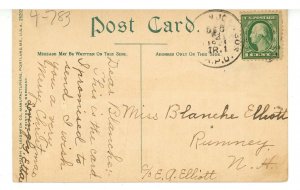 4-783
Post Card.
MESSAGE MAY BE WRITTEN ON THIS SIDE.
ADDRESS ONLY ON THIS SIDE.
Dear Blanche:-
This is the card
I promised to
send. I wish
you a very
Merry Christmas
Lovingly Etta
R.P.O.
TR.1
1 CENT 1
Miss Blanche Elliott
Rumney
N. H.
C/o E.A. Elliott